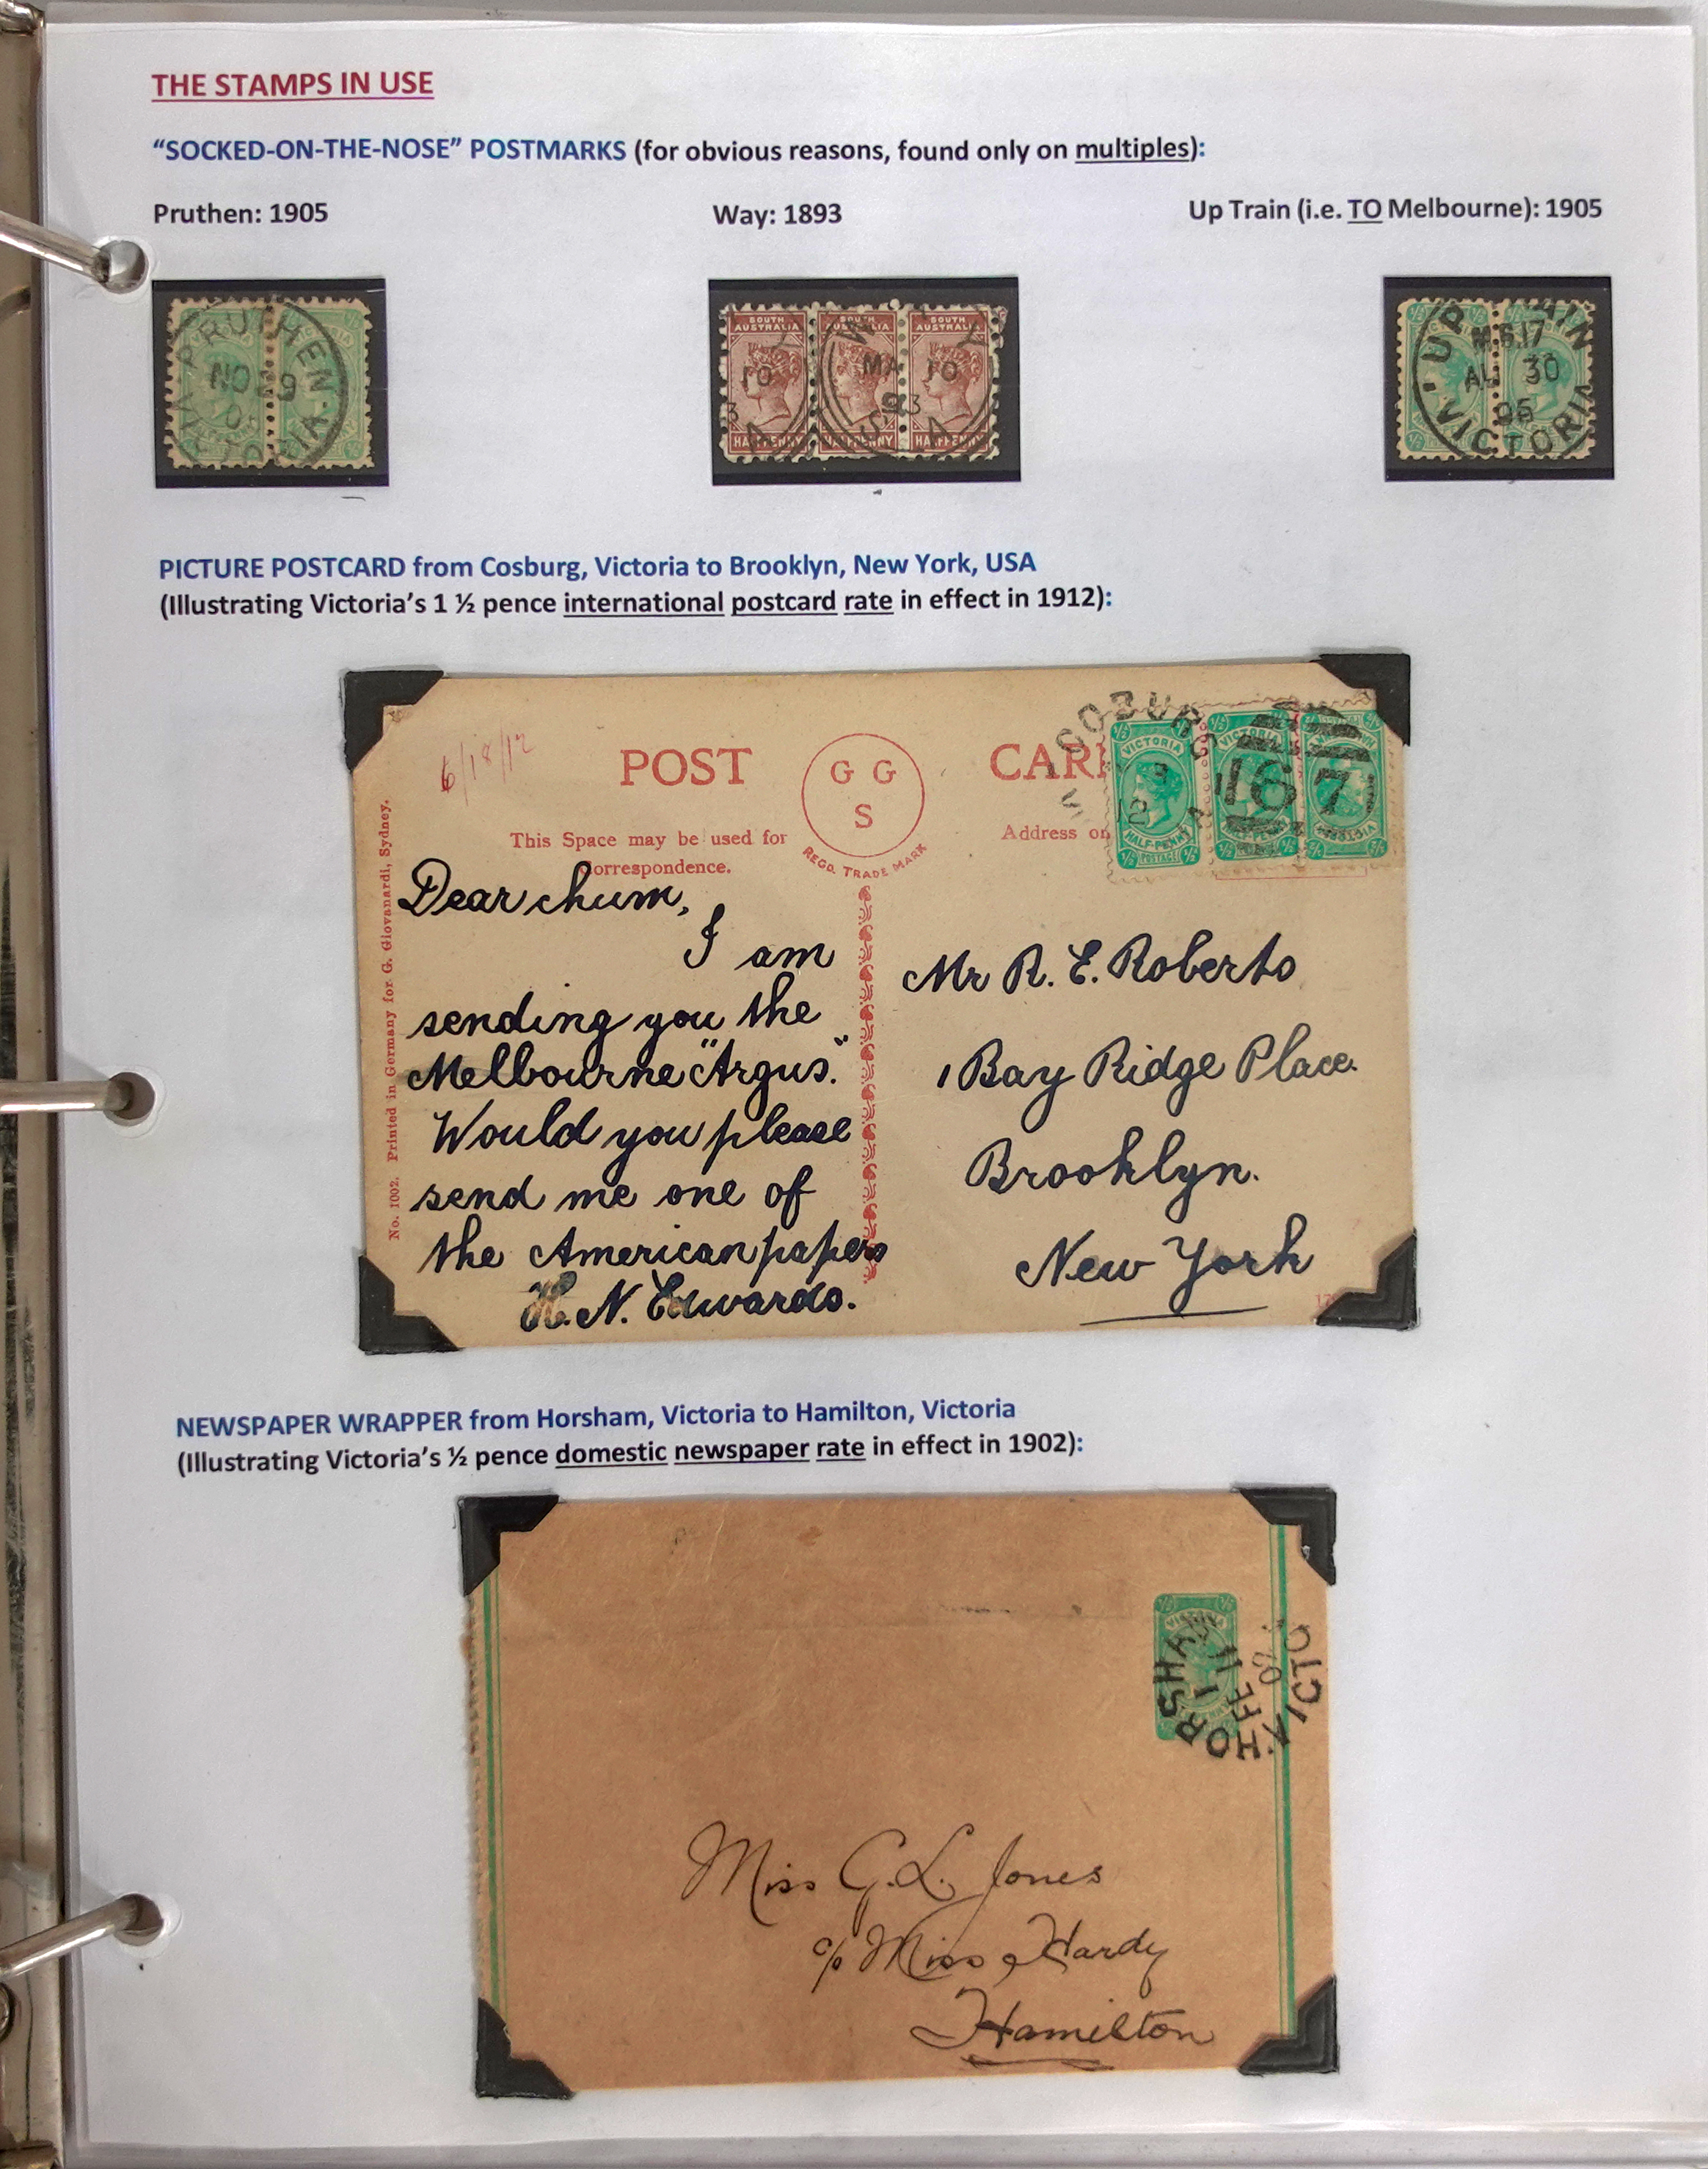 THE STAMPS IN USE
“SOCKED-ON-THE-NOSE” POSTMARKS (for obvious reasons, found only on multiples):
Pruthen: 1905
Way: 1893
Up Train (i.e. TO Melbourne): 1905
PRUTHEN
NO 29
05
VICTORIA
SOUTH AUSTRALIA
SOUTH AUSTRALIA
SOUTH AUSTRALIA
10
MA 10
93
S A
HALFPENNY
HALFPENNY
HALFPENNY
UP
AIN
AU 30
05
VICTORIA
PICTURE POSTCARD from Cosburg, Victoria to Brooklyn, New York, USA
(Illustrating Victoria’s 1 ½ pence international postcard rate in effect in 1912):
6/18/12
POST
G G
S
REGD. TRADE MARK
CAR
This Space may be used for
Correspondence.
Address on
COBURG
VICTORIA
HALF-PENNY
POSTAGE
VICTORIA
167
No. 1002. Printed in Germany for G. Giovanardi, Sydney.
Dear chum,
I am
sending you the
Melbourne "Argus."
Would you please
send me one of
the American papers
H. N. Edwards.
Mr R. E. Roberts
1 Bay Ridge Place.
Brooklyn.
New York
NEWSPAPER WRAPPER from Horsham, Victoria to Hamilton, Victoria
(Illustrating Victoria’s ½ pence domestic newspaper rate in effect in 1902):
VICTORIA
HORSHAM
FE 11
02
VICTO
Miss G. L. Jones
c/o Miss Hardy
Hamilton